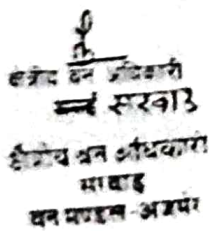 क्षेत्रीय वन अधिकारी
सरवाड
क्षेत्रीय वन अधिकारी
सरवाड
वन मण्डल-अजमेर